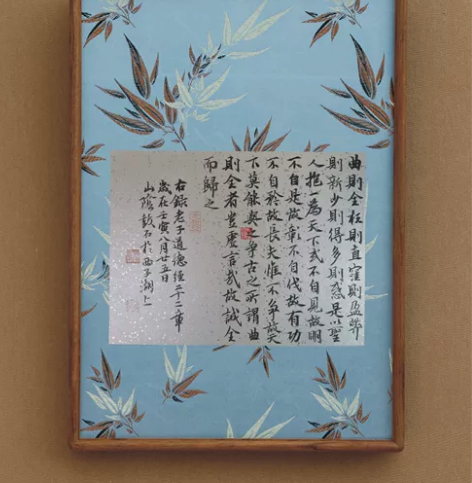 曲則全枉則直窪則盈弊
則新少則得多則惑是以聖
人抱一為天下式不自見故明
不自是故彰不自伐故有功
不自矜故長夫惟不争故天
下莫能與之争古之所謂曲
則全者豈虛言哉故誠全
而歸之
右錄老子道德經二十二章
歲在壬寅八月廿五日
山陰鼓石於西子湖上